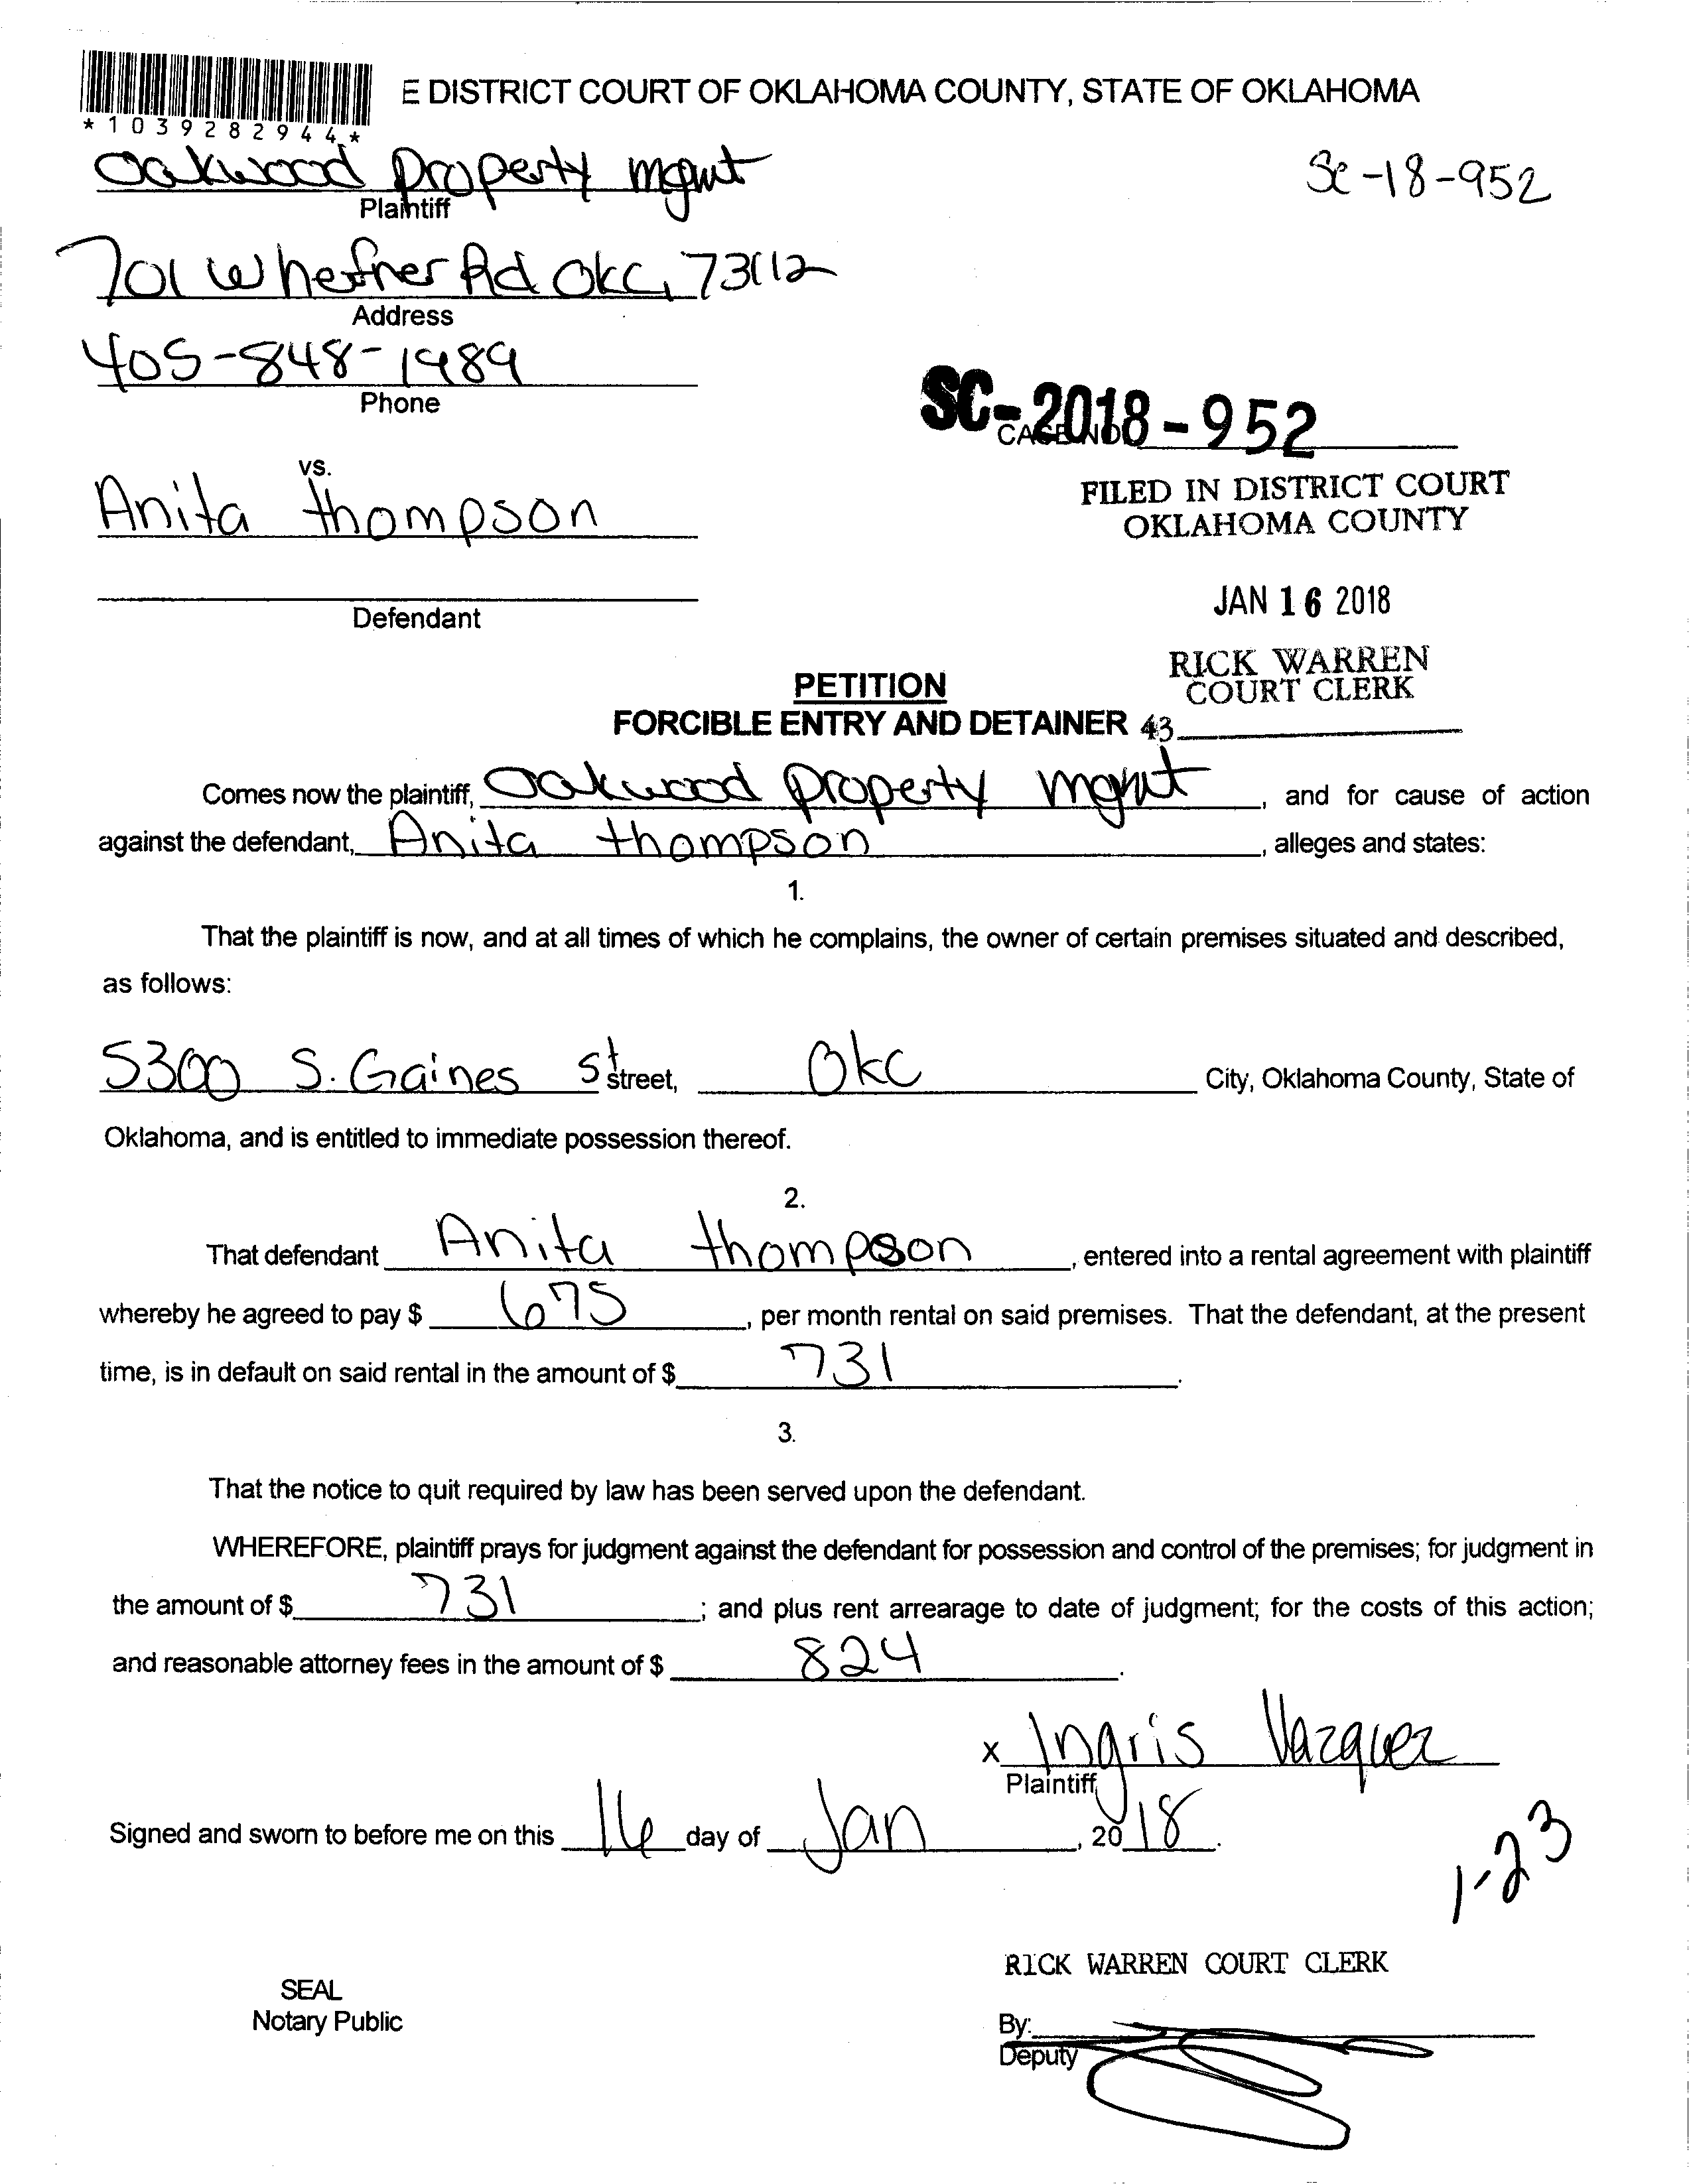 E DISTRICT COURT OF OKLAHOMA COUNTY, STATE OF OKLAHOMA
*1039282944*
Oakwood property mgmt
SC-18-952
Plaintiff
701 W hefner Rd OKC, 73112
Address
405-848-1489
Phone
SC-2018-952
CASE NO.
vs.
Anita thompson
FILED IN DISTRICT COURT
OKLAHOMA COUNTY
Defendant
JAN 16 2018
RICK WARREN
COURT CLERK
PETITION
FORCIBLE ENTRY AND DETAINER 43
Comes now the plaintiff, Oakwood property mgmt, and for cause of action
against the defendant, Anita thompson, alleges and states:
1.
That the plaintiff is now, and at all times of which he complains, the owner of certain premises situated and described,
as follows:
5300 S. Gaines St street, OKC City, Oklahoma County, State of
Oklahoma, and is entitled to immediate possession thereof.
2.
That defendant Anita thompson, entered into a rental agreement with plaintiff
whereby he agreed to pay $ 675, per month rental on said premises. That the defendant, at the present
time, is in default on said rental in the amount of $ 731.
3.
That the notice to quit required by law has been served upon the defendant.
WHEREFORE, plaintiff prays for judgment against the defendant for possession and control of the premises; for judgment in
the amount of $ 731; and plus rent arrearage to date of judgment; for the costs of this action;
and reasonable attorney fees in the amount of $ 824.
x Ingris Vazquez
Plaintiff
Signed and sworn to before me on this 16 day of Jan, 2018.
1-23
RICK WARREN COURT CLERK
SEAL
Notary Public
By:
Deputy